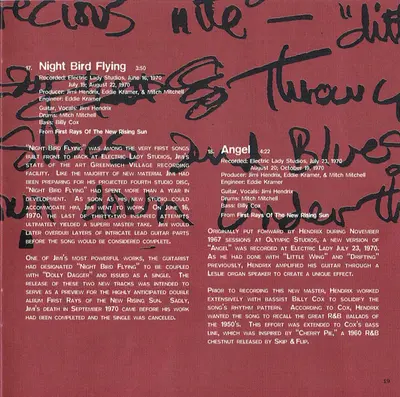 recious nite — "ditt
17. Night Bird Flying 3:50
Recorded: Electric Lady Studios, June 16, 1970
July 19; August 22, 1970
Producer: Jimi Hendrix, Eddie Kramer & Mitch Mitchell
Engineer: Eddie Kramer
Guitar, Vocals: Jimi Hendrix
Drums: Mitch Mitchell
Bass: Billy Cox
From First Rays Of The New Rising Sun
"Night Bird Flying" was among the very first songs
built from front to back at Electric Lady Studios, Jimi's
state of the art Greenwich Village recording
facility. Like the majority of new material Jimi had
been preparing for his projected fourth studio disc,
"Night Bird Flying" had spent more than a year in
development. As soon as his new studio could
accommodate him, Jimi went to work. On June 16,
1970, the last of thirty-two inspired attempts
ultimately yielded a superb master take. Jimi would
later overdub layers of intricate lead guitar parts
before the song would be considered complete.
One of Jimi's most powerful works, the guitarist
had designated "Night Bird Flying" to be coupled
with "Dolly Dagger" and issued as a single. The
release of these two new tracks was intended to
serve as a preview for the highly anticipated double
album First Rays of the New Rising Sun. Sadly,
Jimi's death in September 1970 came before his work
had been completed and the single was canceled.
18. Angel 4:22
Recorded: Electric Lady Studios, July 23, 1970
August 20; October 19, 1970
Producer: Jimi Hendrix, Eddie Kramer, & Mitch Mitchell
Engineer: Eddie Kramer
Guitar, Vocals: Jimi Hendrix
Drums: Mitch Mitchell
Bass: Billy Cox
From First Rays Of The New Rising Sun
Originally put forward by Hendrix during November
1967 sessions at Olympic Studios, a new version of
"Angel" was recorded at Electric Lady July 23, 1970.
As he had done with "Little Wing" and "Drifting"
previously, Hendrix amplified his guitar through a
Leslie organ speaker to create a unique effect.
Prior to recording this new master, Hendrix worked
extensively with bassist Billy Cox to solidify the
song's rhythm pattern. According to Cox, Hendrix
wanted the song to recall the great R&B ballads of
the 1950's. This effort was extended to Cox's bass
line, which was inspired by "Cherry Pie," a 1960 R&B
chestnut released by Skip & Flip.
19